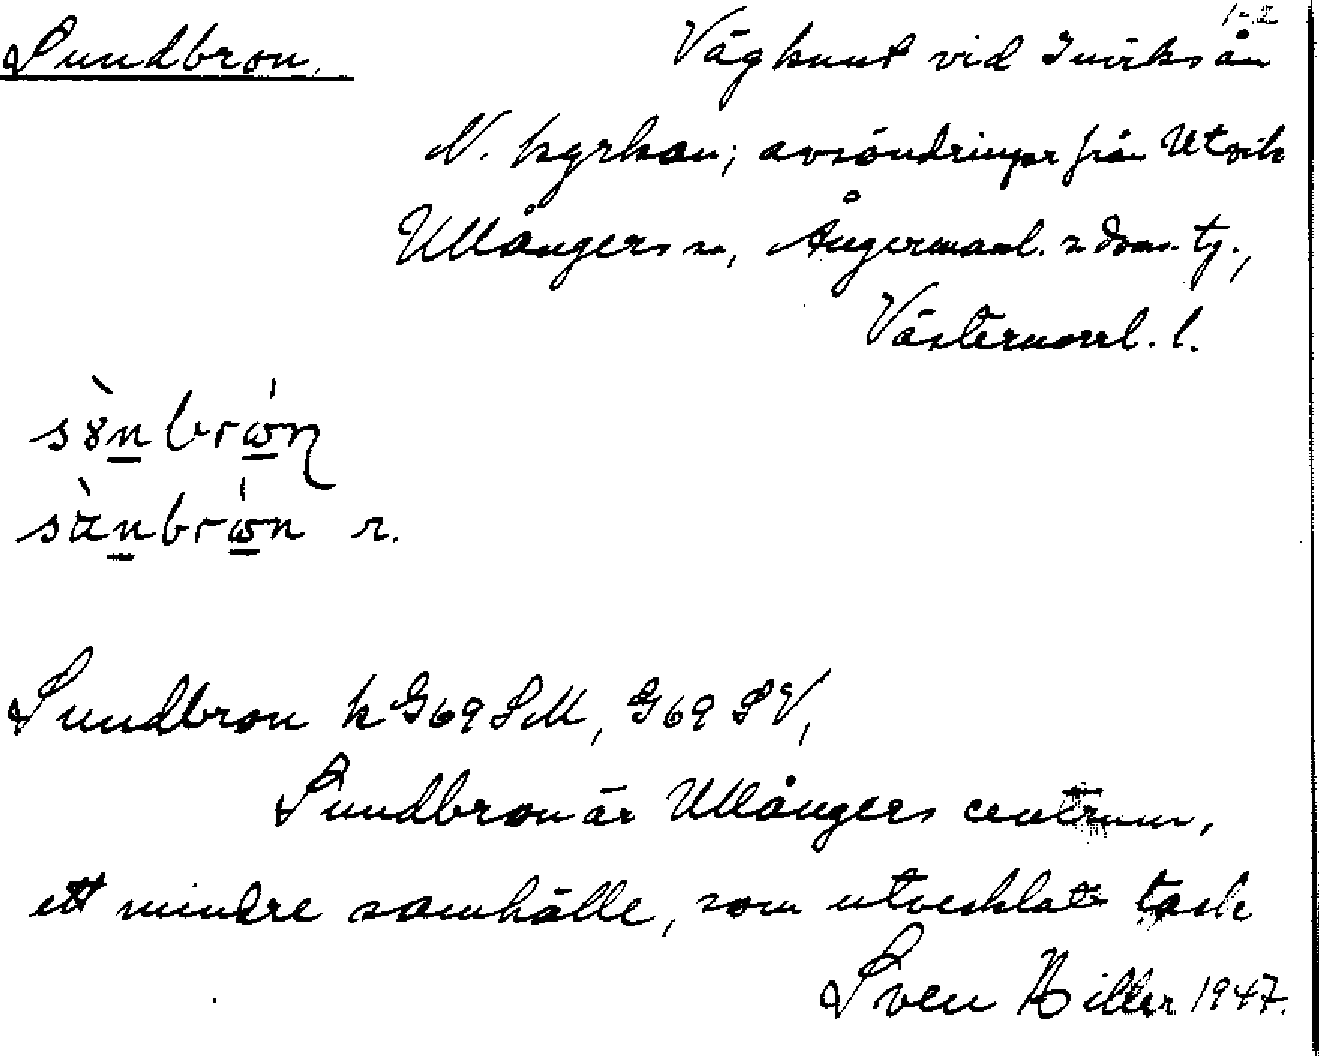 1-2
Sundbron. Vägknut vid Inviksån
N. kyrkan; avsöndringar från Utvik
Ullångers sn, Ångermanl. s doms. tg.,
Västernorrl. l.
sɤ̀nbrών
sὰnbrών r.
Sundbron k G69 SM, G69 SV,
Sundbron är Ullångers centrum,
ett mindre samhälle, som utvecklats
Sven Hiller 1947.